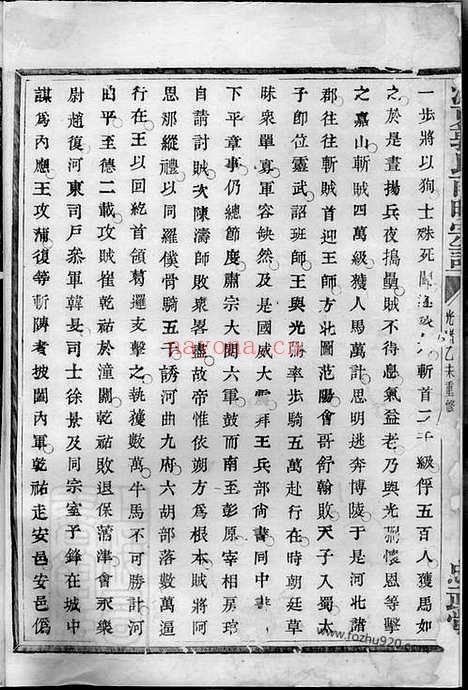 一步將以狥士殊死鬭遂破之斬首二千級俘五百人獲馬如
之於是晝揚兵夜搗壘賊不得息氣益老乃與光弼懷恩等擊
之嘉山斬賊四萬級獲人馬萬計思明逃奔博陵于是河北諸
郡往往斬賊首迎王師方北圖范陽會哥舒翰敗天子入蜀太
子即位靈武詔班師王與光弼率步騎五萬赴行在時朝廷草
昧衆單寡軍容缺然及是國威大震拜王兵部尚書同中書
下平章事仍總節度肅宗大閱六軍鼓而南至彭原宰相房琯
自請討賊次陳濤師敗衆畧盡故帝惟依朔方爲根本賊將阿
思那縱禮以同羅僕骨騎五千誘河曲九府六胡部落數萬逼
行在王以回紇首領葛邏支擊之執獲數萬牛馬不可勝計河
曲平至德二載攻賊崔乾祐於潼關乾祐敗退保蒲津會永樂
尉趙復河東司戶叅軍韓旻司士徐景及同宗室子鋒在城中
謀爲內應王攻蒲復等斬陴者披闔內軍乾祐走安邑安邑僞
光緒乙未重修
nayona.cn
www.fozhu920.com